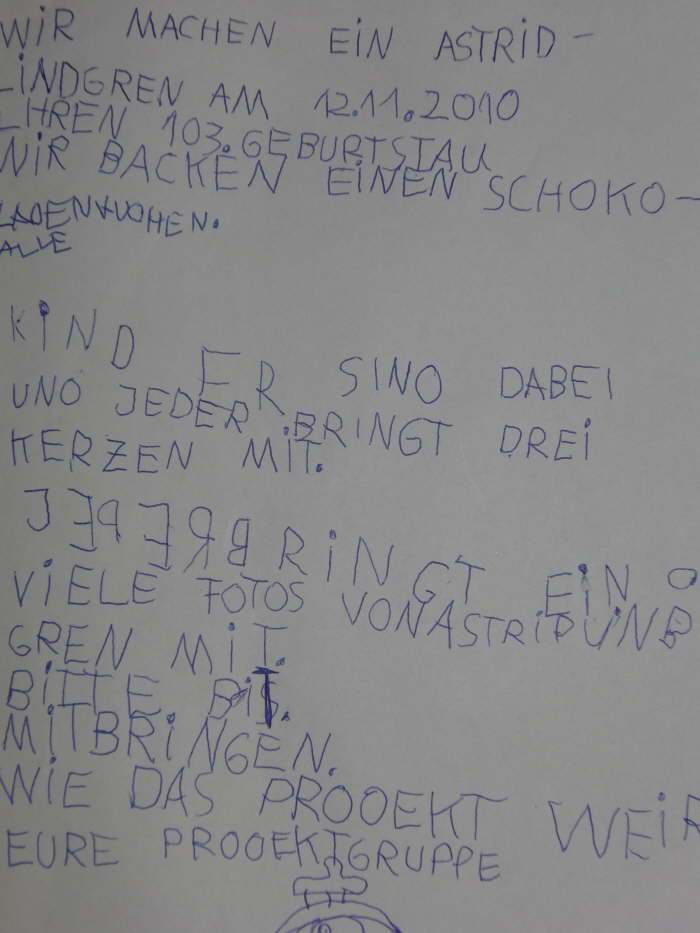 WiR MACHEN EiN ASTRiD-
LiNDGREN AM 12.11.2010
LHREN 103.GEBURTSTAU
WiR BACKEN EiNEN SCHOKO-
LADENKUCHEN.
ALLE
KiND ER SINO DABEI
UNO JEDER BRINGT DREi
KERZEN MiT.
JEDERBRiNGT EiN O
ViELE FOTOS VONASTRiDUiNB
GREN MiT.
BiTTE BiS.
MiTBRiNGEN.
WiE DAS PROOEKT WEiR
EURE PROOEKTGRUPPE